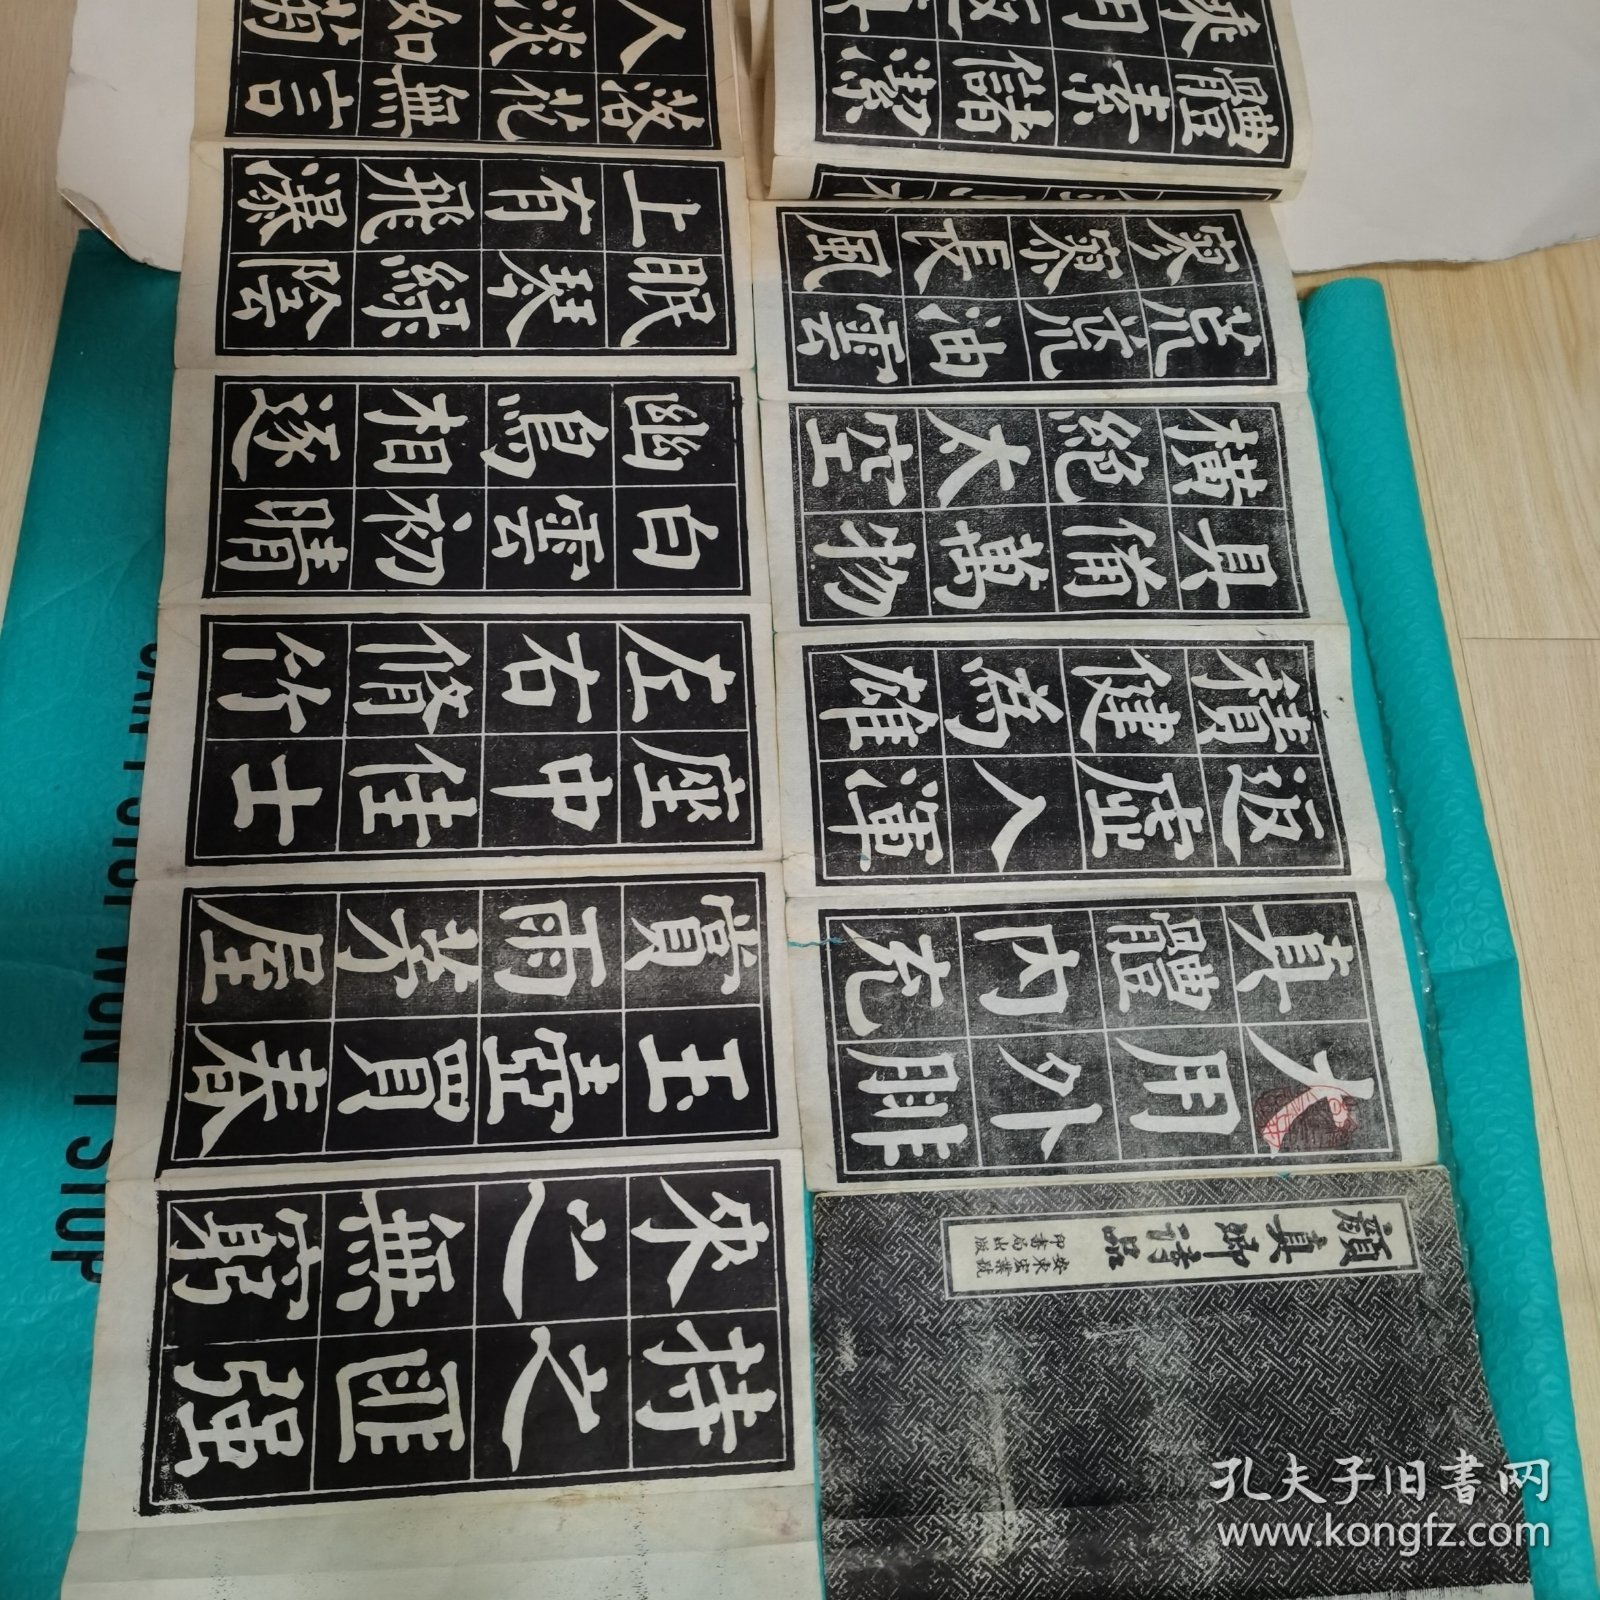 顏真卿詩品
安東宏業號
印書局出版
大用外腓
真體內充
返虛入渾
積健為雄
具備萬物
橫絕大空
荒荒油雲
寥寥長風
體素儲潔
乘月返真
持之匪強
來之無窮
玉壺買春
賞雨茅屋
座中佳士
左右脩竹
白雲初晴
幽鳥相逐
眠琴綠陰
上有飛瀑
落花無言
人淡如菊
CAN'T STOP WON'T STOP
孔夫子旧书网
www.kongfz.com